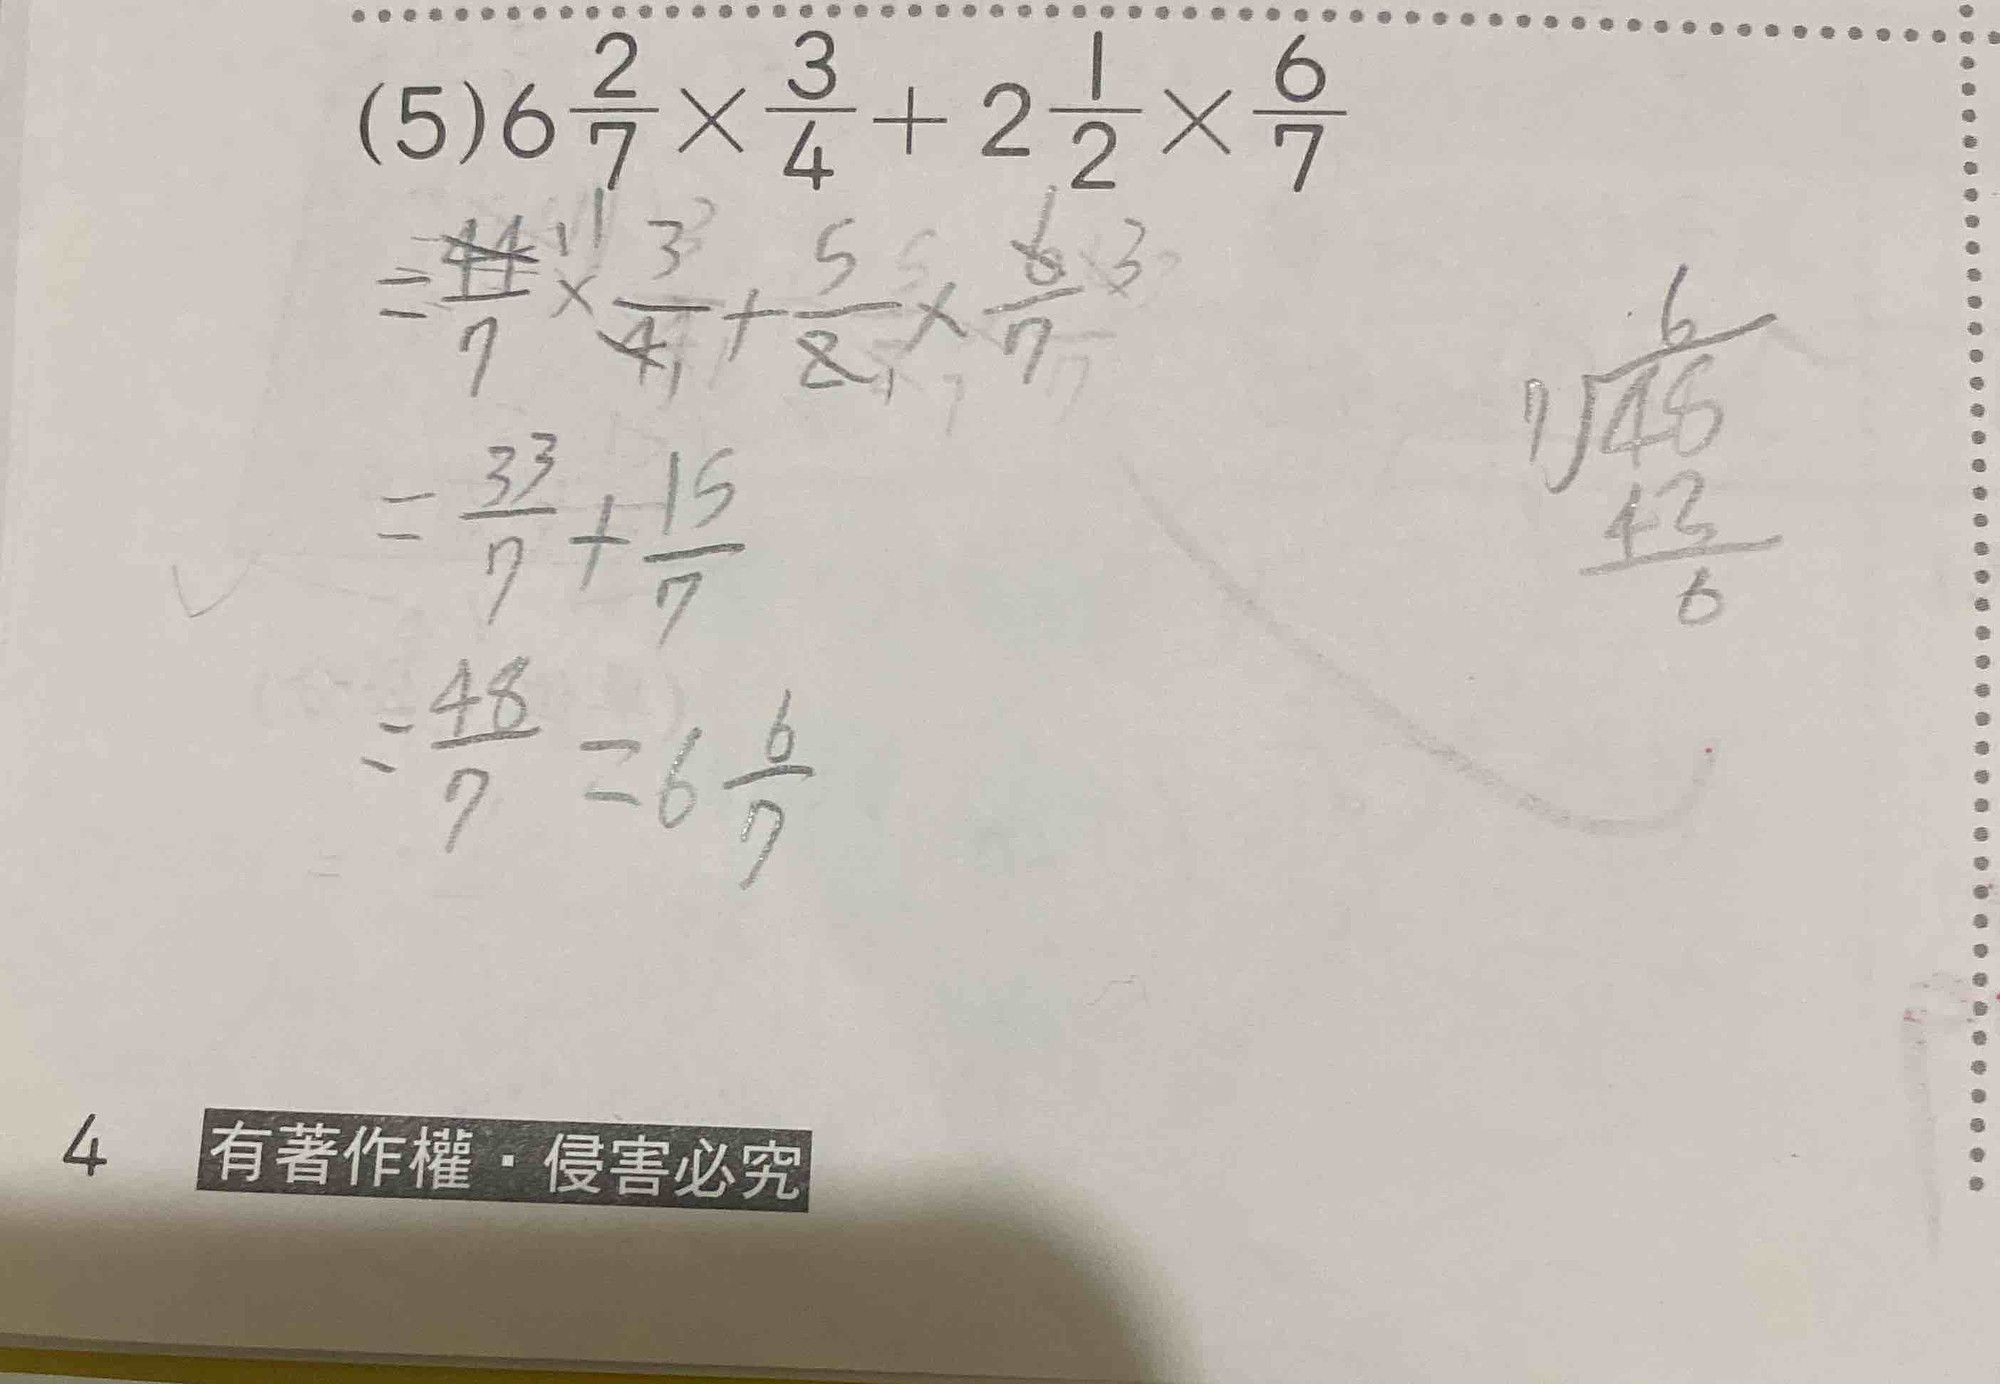 (5) 6 2/7 × 3/4 + 2 1/2 × 6/7
= 44/7 11 × 3/4 1 + 5/2 1 × 6/7 3
= 33/7 + 15/7
= 48/7 = 6 6/7
6
7 48
42
6
4 有著作權・侵害必究